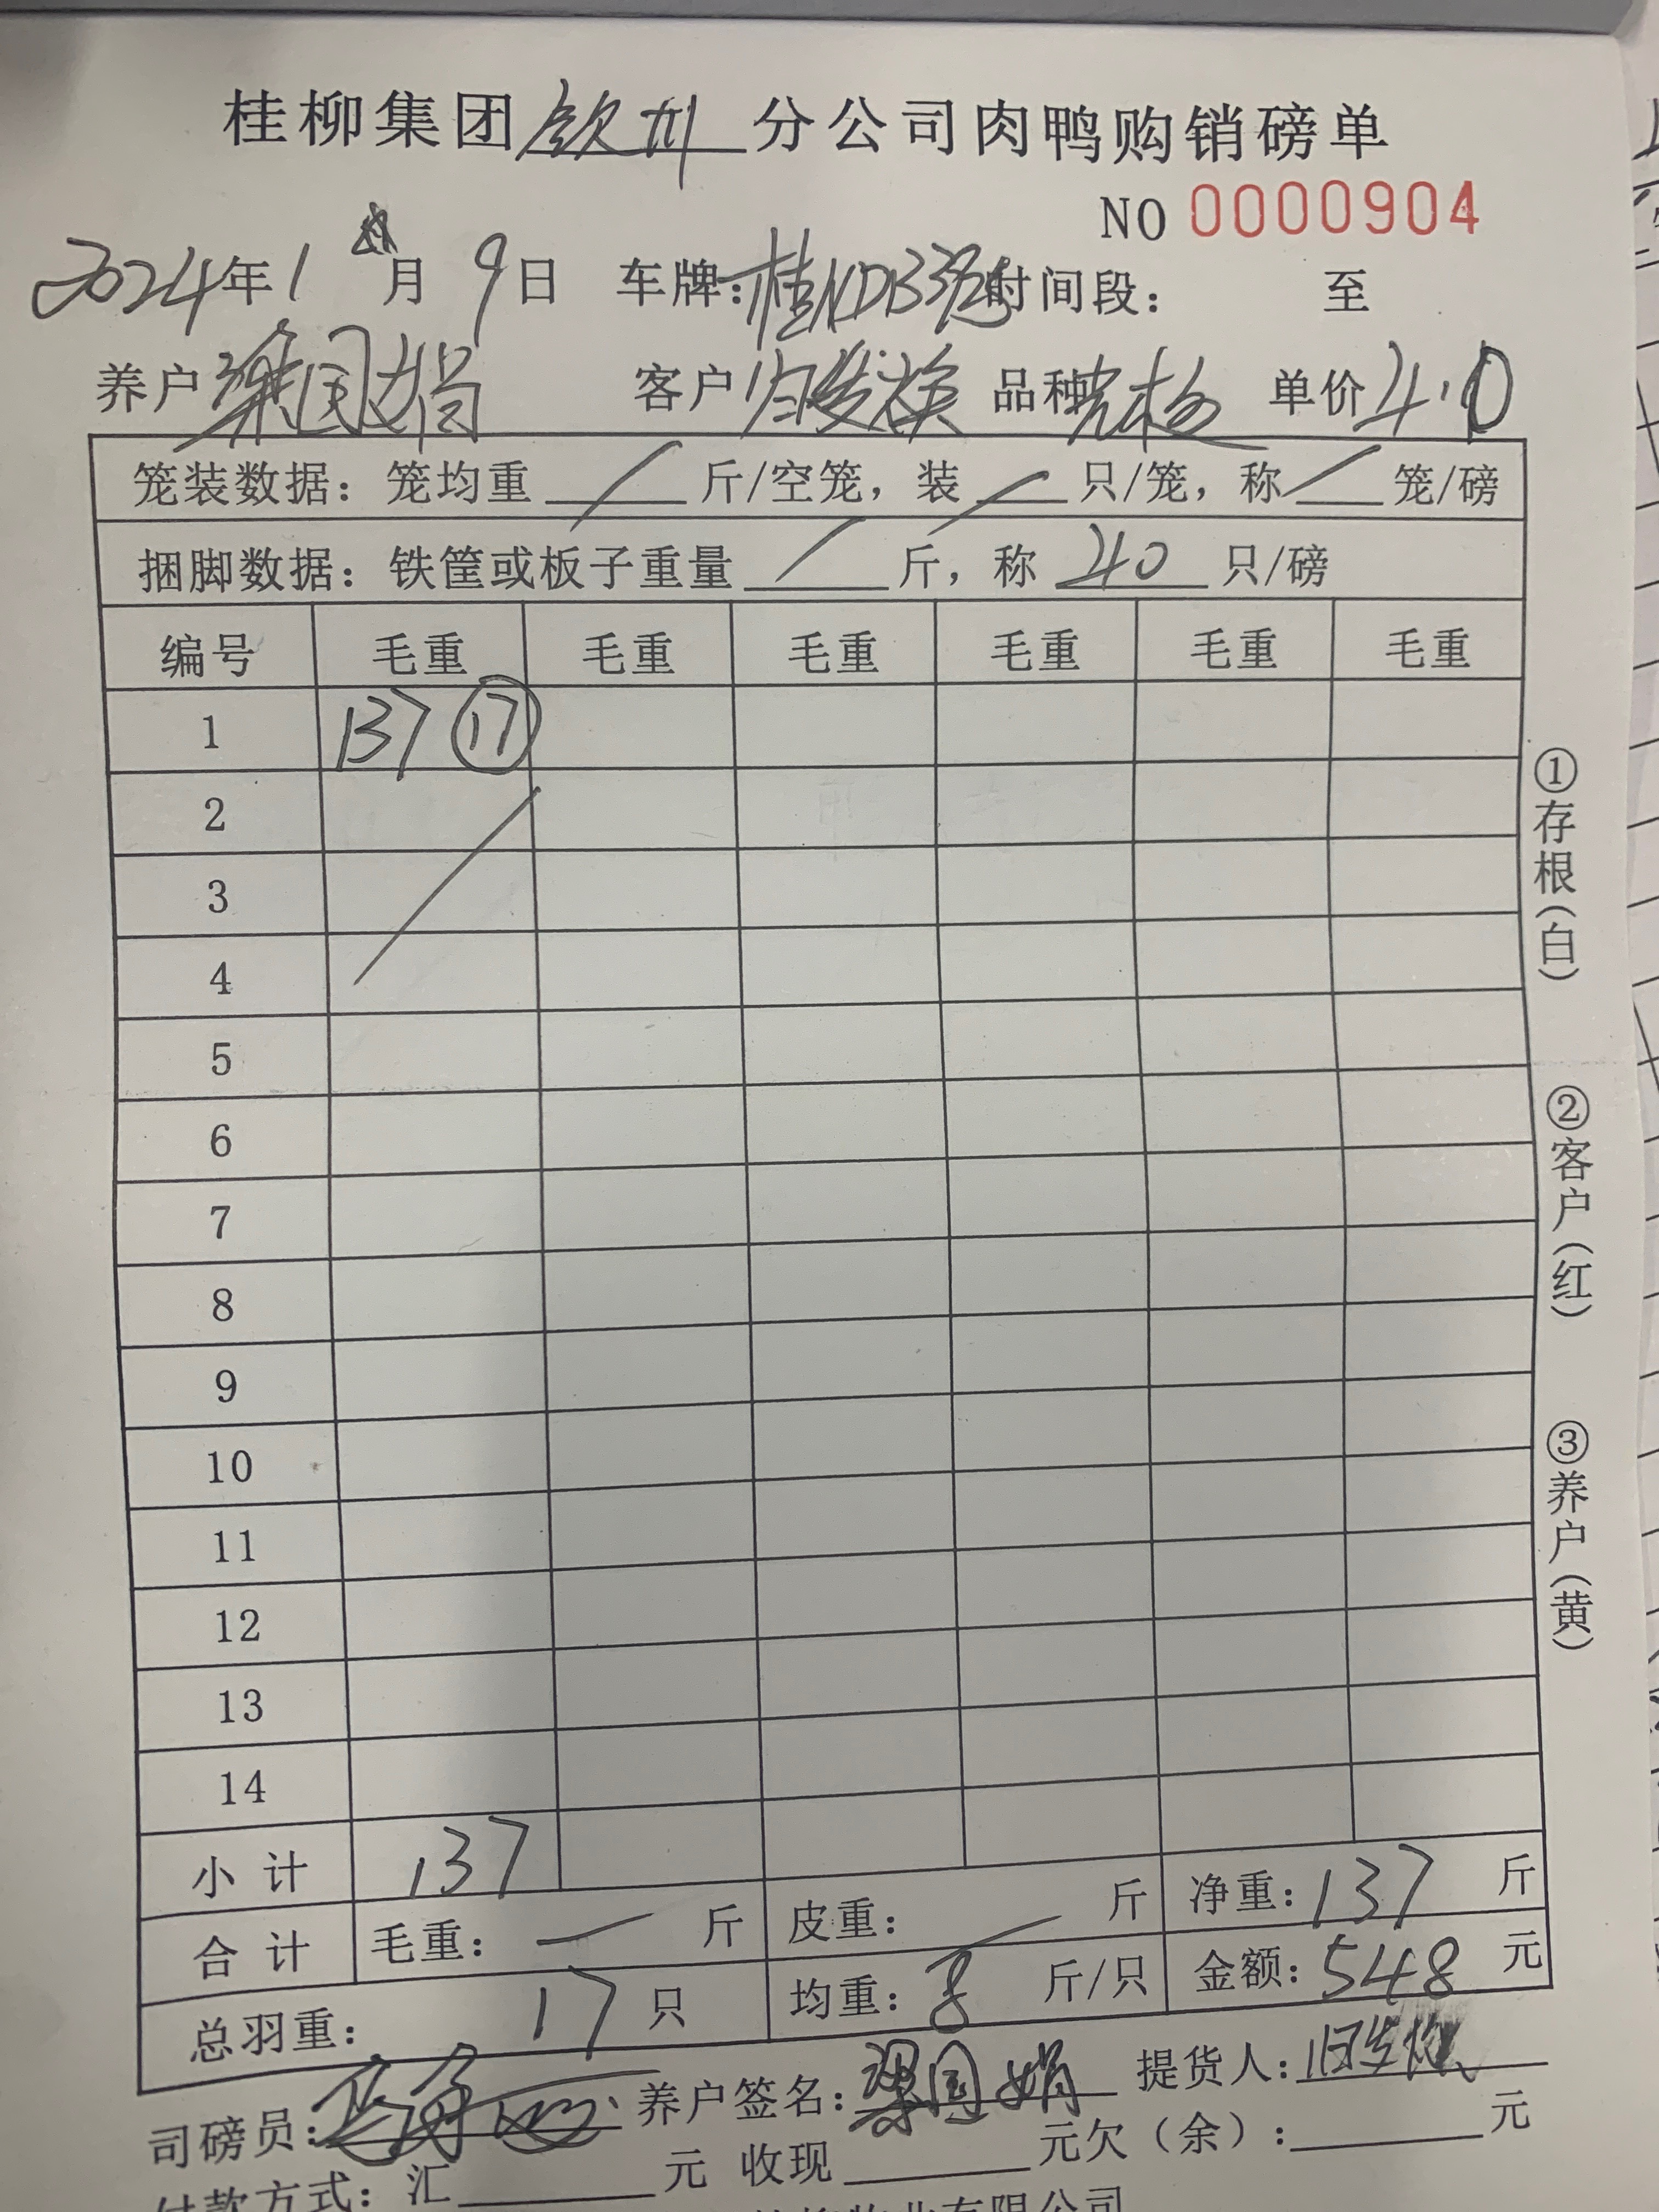 桂柳集团钦州分公司肉鸭购销磅单
NO 0000904
2024年1月9日 车牌：桂NDB 时间段： 至
养户梁国娟 客户 品种 单价4.0
笼装数据：笼均重 / 斤/空笼，装 / 只/笼，称 / 笼/磅
捆脚数据：铁筐或板子重量 / 斤，称 40 只/磅
编号 毛重 毛重 毛重 毛重 毛重 毛重
1 137 ⑰
2
3
4
5
6
7
8
9
10
11
12
13
14
小计 137
合计 毛重：— 斤 皮重：— 斤 净重：137 斤
总羽重： 17 只 均重：8 斤/只 金额：548 元
司磅员： 养户签名：梁国娟 提货人：
付款方式：汇 元 收现 元欠（余）： 元
①存根（白）
②客户（红）
③养户（黄）